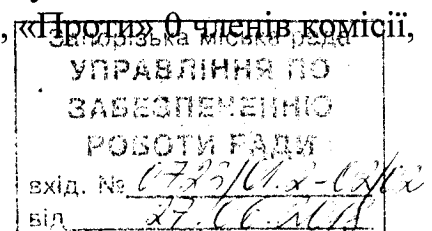 , «Проти» 0 членів комісії,
Запорізька міська рада
УПРАВЛІННЯ ПО
ЗАБЕЗПЕЧЕННЮ
РОБОТИ РАДИ
вхід. №
від 27.06.